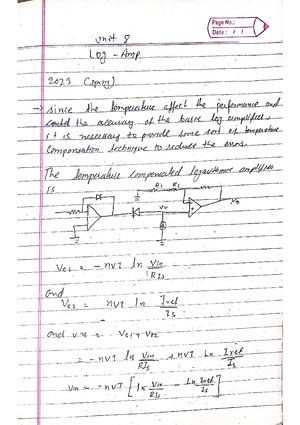 Page No.:
Date: / /
Unit 8
Log - Amp
2023 (spring)
→ since the temperature affect the performance and
the accuracy of the basic log amplifier,
it is necessary to provide some sort of temperature
compensation technique to reduce the errors.
The temperature compensated logarithmic amplifier
is
Vo1 = - nVT ln Vin / RIs
and
Vo2 = nVT ln Iref / Is
and Vx = Vo1 + Vo2
= - nVT ln Vin / RIs + nVT ln Iref / Is
Vx = - nVT [ ln Vin / RIs - ln Iref / Is ]